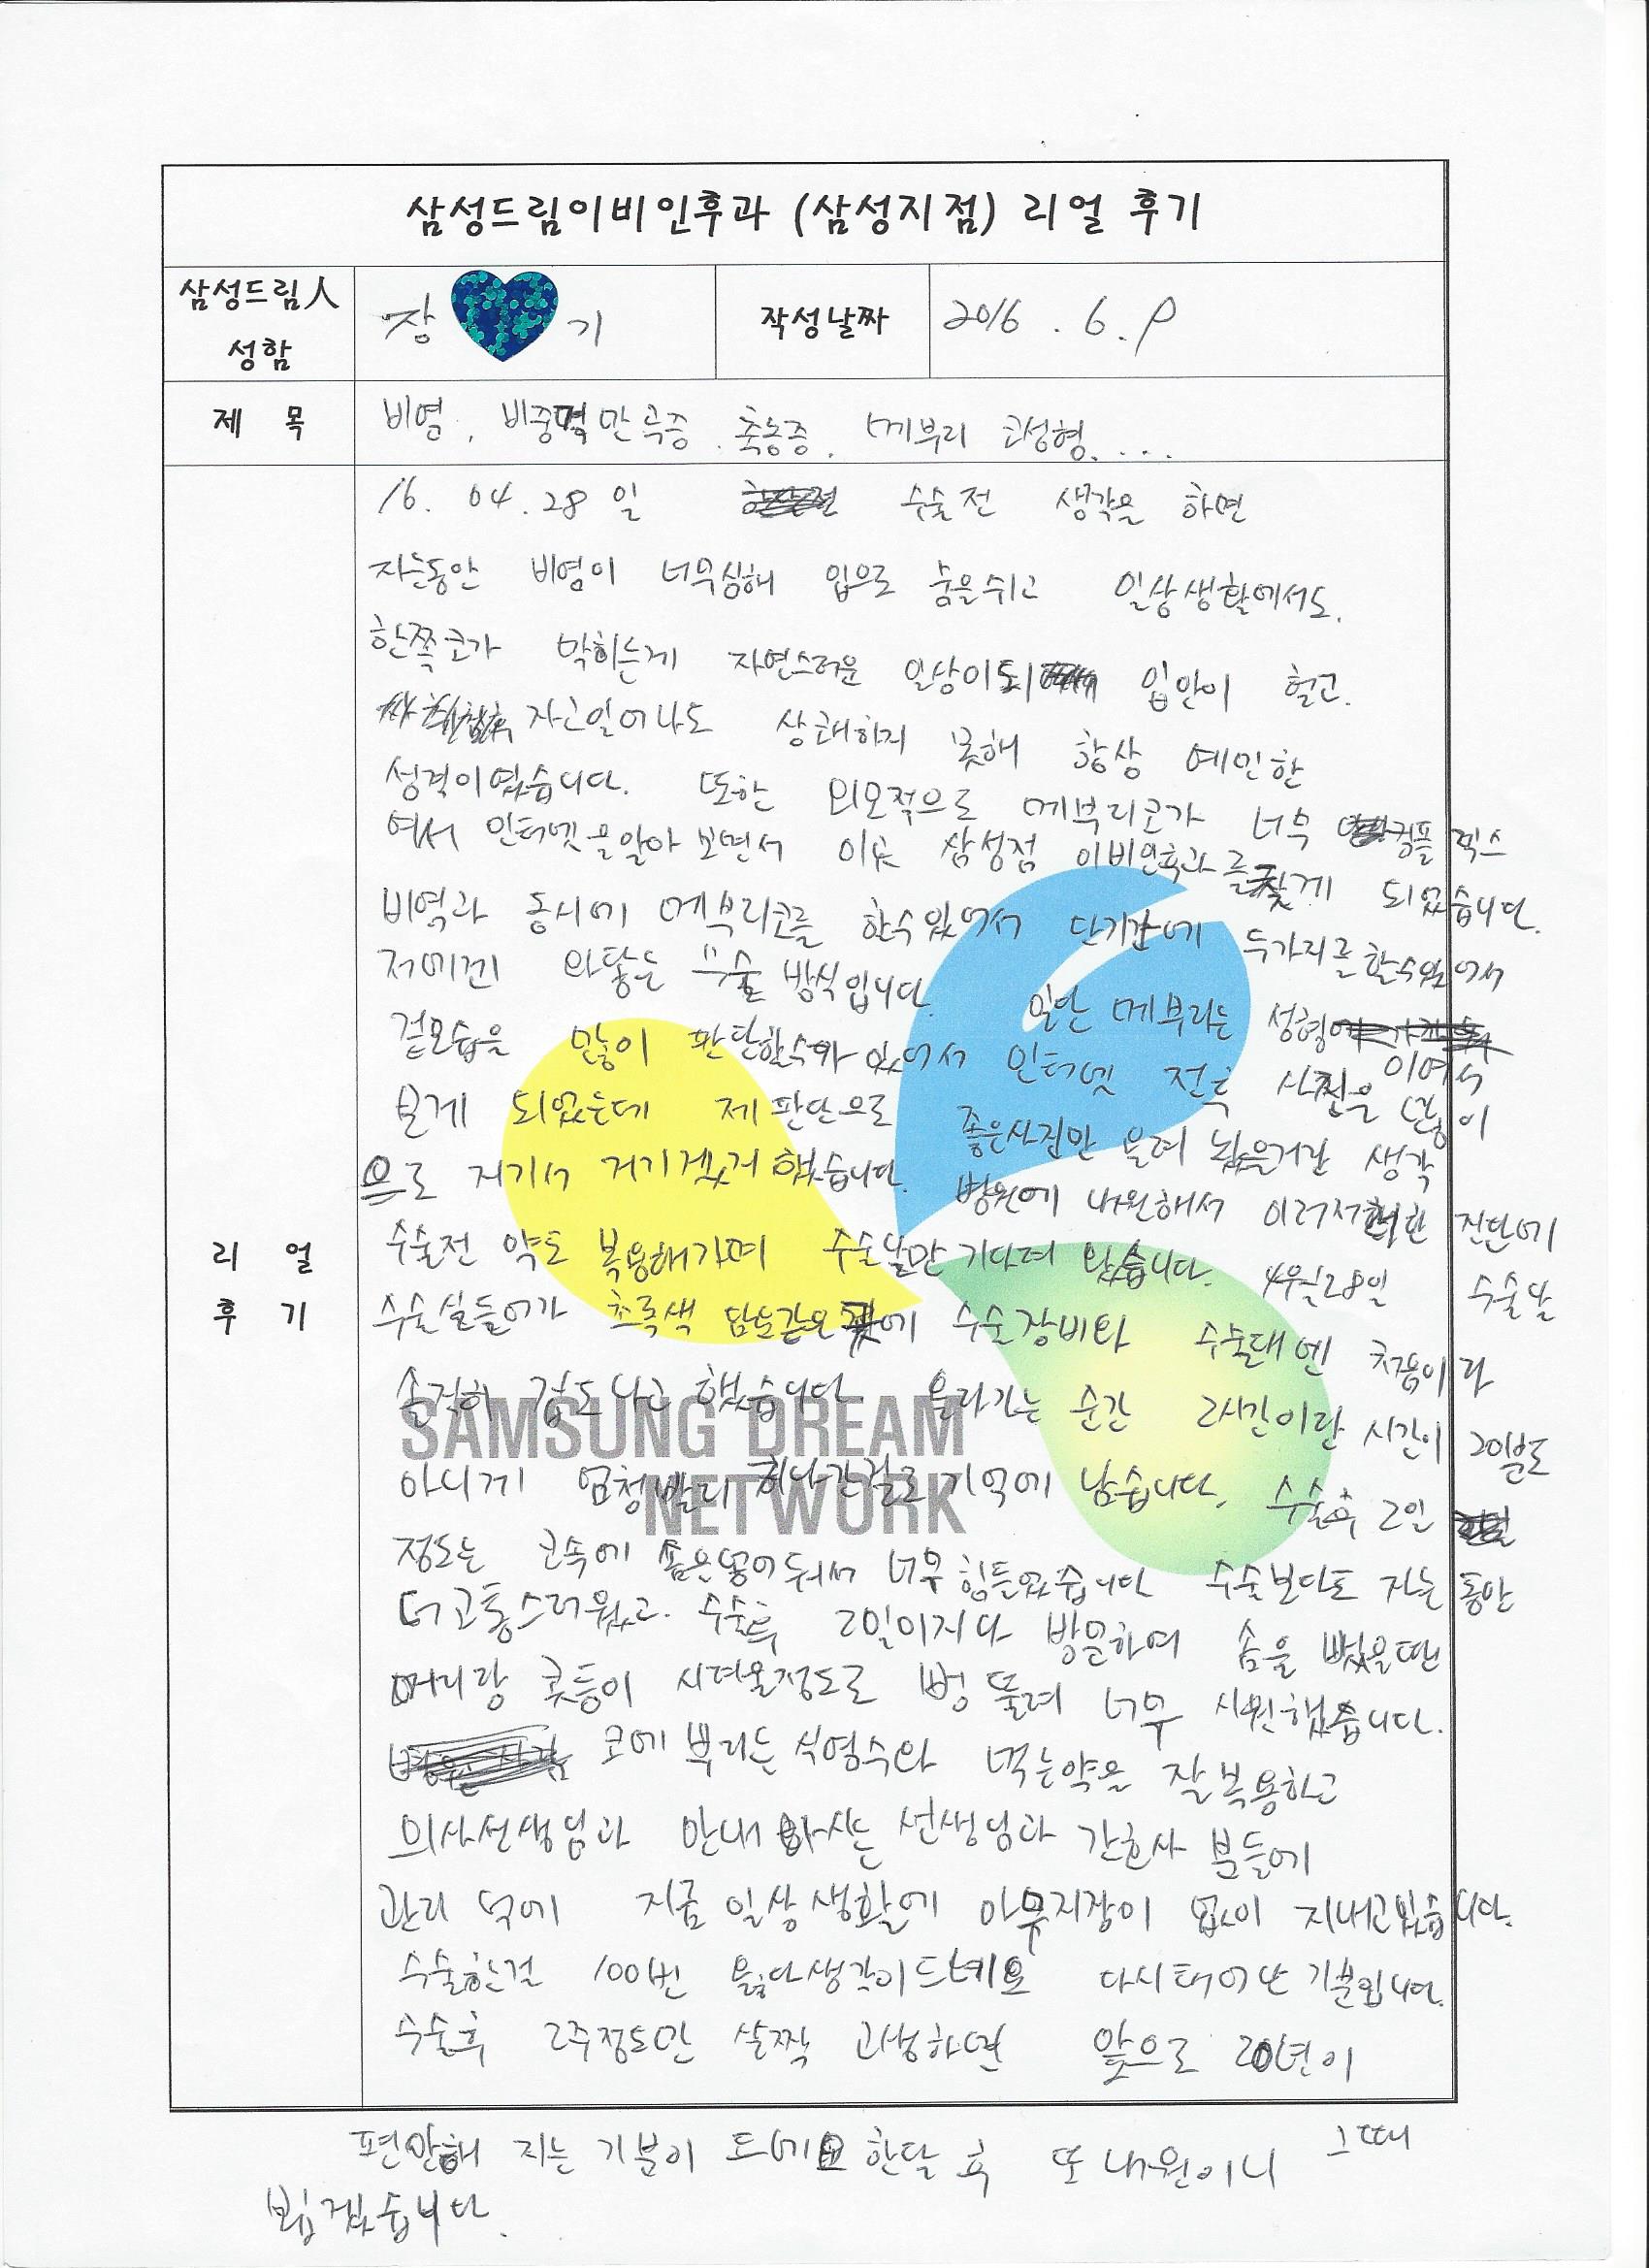 삼성드림이비인후과 (삼성지점) 리얼 후기
삼성드림人 성함
장 기
작성날짜
2016 . 6. 9
제 목
비염, 비중격만곡증. 축농증, 메부리 코성형....
리 얼 후 기
16. 04. 28 일 수술전 생각을 하면
자는동안 비염이 너무심해 입으로 숨을쉬고 일상생활에서도.
한쪽코가 막히는게 자연스러운 일상이되 입안이 헐고.
자고일어나도 상쾌하지 못해 항상 예민한
성격이였습니다. 또한 외모적으로 메부리코가 너무 컴플렉스
여서 인터넷을알아 보면서 이곳 삼성점 이비인후과를찾게 되었습니다.
비염과 동시에 메부리코를 할수있어서 단기간에 두가지를할수있어서
저에겐 와닿는 수술 방식입니다. 일단 메부리는 성형이여서
겉모습을 많이 판단할수가 있어서 인터넷 전후 사진을 많이
보게 되었는데 제 판단으로 좋은사진만 올려 놨을거란 생각
으로 저기서 거기겠거 했습니다. 병원에 내원해서 이러저러한 진단에
수술전 약도 복용해가며 수술날만 기다려 왔습니다. 4월28일 수술날
수술실들어가 초록색 담요같은 에 수술장비와 수술대엔 처음이라
솔직히 겁도나고 했습니다 올라가는 순간 2시간이란 시간이 20분도
아니게 엄청빨리 지나간걸로 기억에 남습니다. 수술후 2일
정도는 코속에 솜은넣어둬서 너무 힘들었습니다 수술보다도 자는동안
더고통스러웠고. 수술후 2일이지나 방문하여 솜을 뺐을땐
머리랑 콧등이 시려울정도로 뻥 뚫려 너무 시원했습니다.
코에 뿌리는 식염수와 먹는약을 잘복용하고
의사선생님과 안내하시는 선생님과 간호사 분들에
관리 덕에 지금 일상생활에 아무지장이 없이 지내고있습니다.
수술한걸 100번 옳다생각이드네요 다시태어난 기분입니다.
수술후 2주정도만 살짝 고생하면 앞으로 20년이
편안해 지는 기분이 드네요 한달 후 또 내원이니 그때
뵙겠습니다.
SAMSUNG DREAM
NETWORK